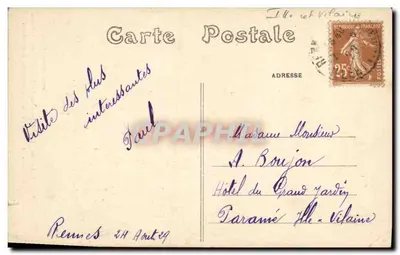 Ille et Vilaine
Carte Postale
ADRESSE
25c
Visite des plus
intéressantes
Paul
Rennes 24 Août 29
Madame Monsieur
A. Boujon
Hôtel du Grand Jardin
Paramé Ille-Vilaine